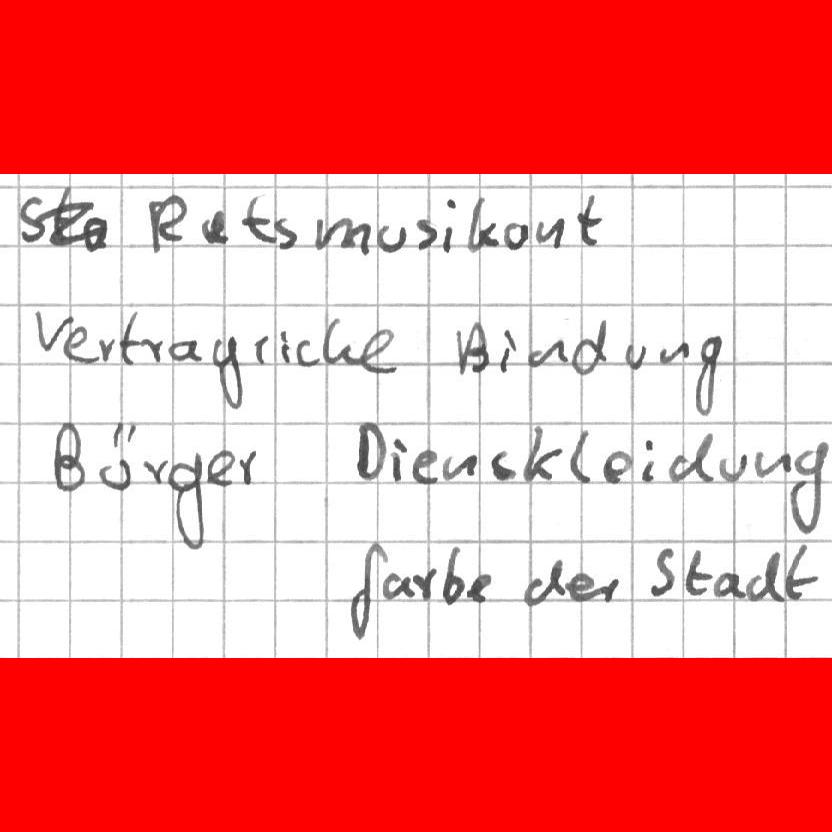 Ratsmusikant
Vertragliche Bindung
Bürger Dienskleidung
farbe der Stadt